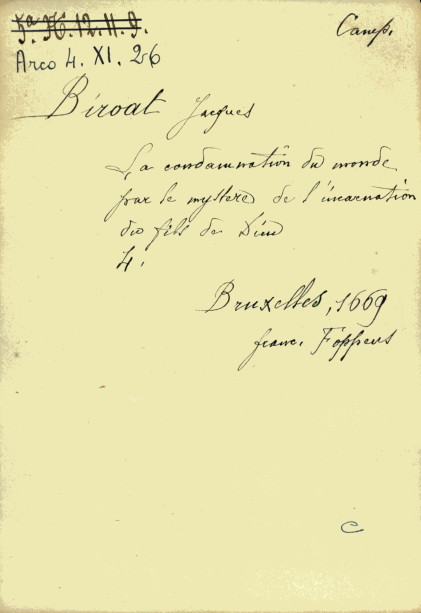 5ª H. 12. 11. 9.
Camp.
Arco 4. XI. 26
Biroat Jacques
La condamnatiõn du monde
par le mystere de l'incarnation
du fils de Dieu
4.
Bruxelles, 1669
franc. Foppens
C